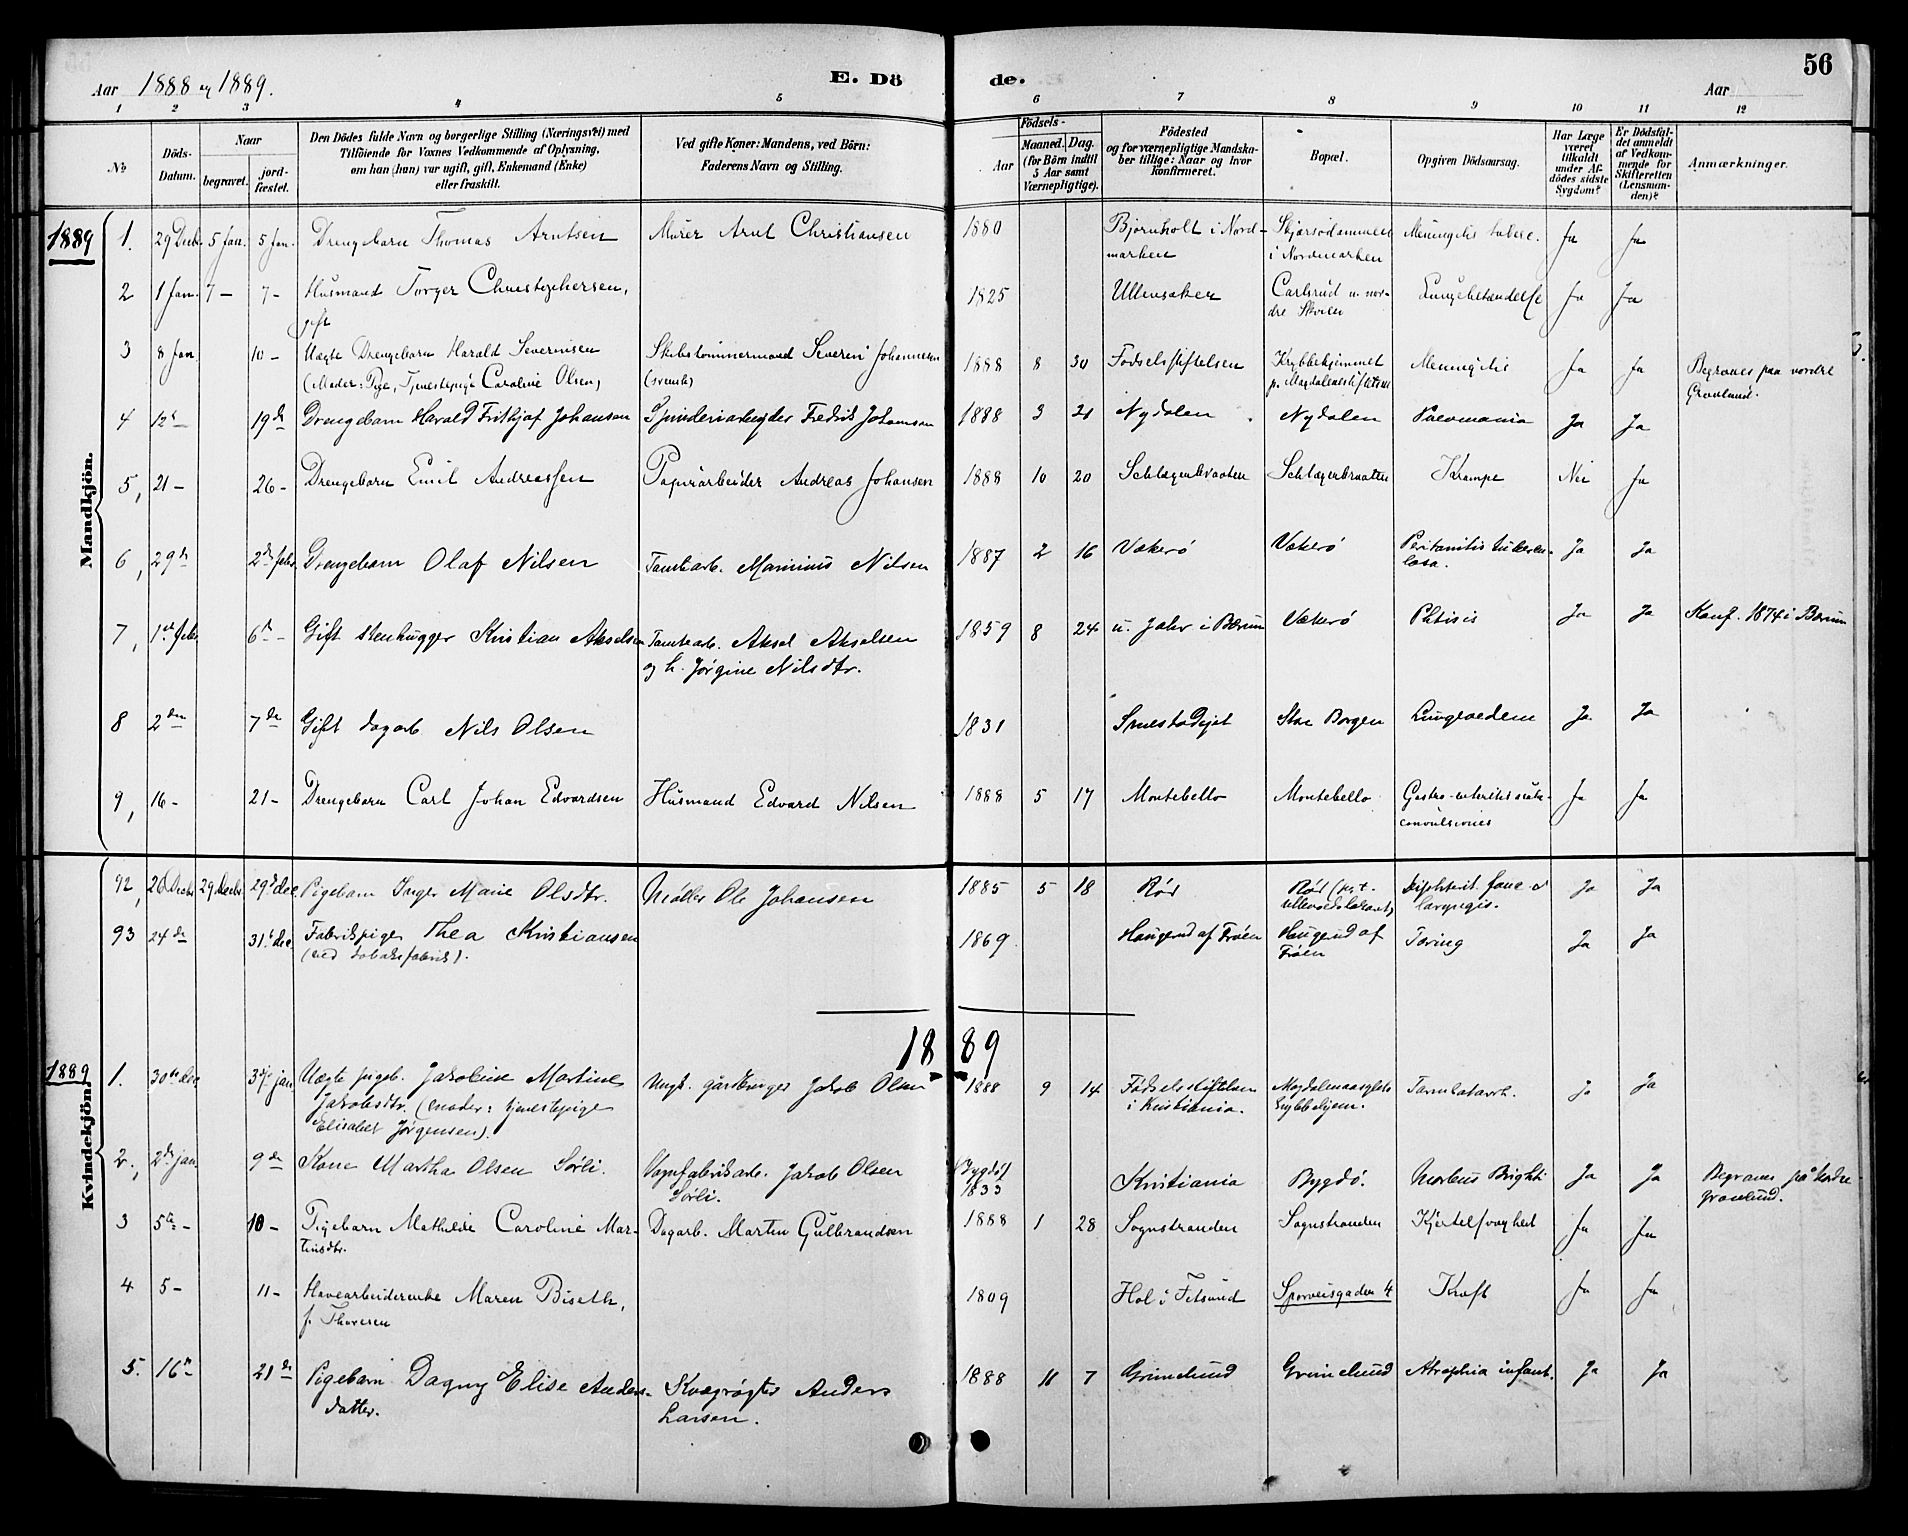 56
Aar 1888 og 1889.
E. Dö
de.
Aar
1 2 3 4 5 6 7 8 9 10 11 12
No
Döds-Datum.
Naar
begravet.
jord-fæstet.
Den Dödes fulde Navn og borgerlige Stilling (Næringsvei) med
Tilföiende for Voxnes Vedkommende af Oplysning,
om han (hun) var ugift, gift, Enkemand (Enke)
eller fraskilt.
Ved gifte Koner: Mandens, ved Börn:
Faderens Navn og Stilling.
Födsels-
Aar
Maaned. Dag.
(for Börn indtil
5 Aar samt
Værnepligtige).
Födested
og for værnepligtige Mandska-
ber tillige: Naar og hvor
konfirmeret.
Bopæl.
Opgiven Dödsaarsag.
Har Læge
været
tilkaldt
under Af-
dödes sidste
Sygdom?
Er Dödsfal-
det anmeldt
af Vedkom-
mende for
Skifteretten
(Lensman-
den)?
Anmærkninger.
Mandkjön.
1889 1. 29 Decb. 5 Jan. 5 Jan. Drengebarn Thomas Arntsen Murer Arnt Christiansen 1880 Bjørnholt i Nord- Skjærsødammen Meningitis Ja Ja
marken i Nordmarken
2 1 Jan. 7 - 7 - Husmand Torger Christophersen, 1825 Ullensaker Carlsrud u. nor- Lungebetændelse Ja Ja
gift dre Skøien
3 8 Jan. 10 - Uægte Drengebarn Harald Severinsen Skibstømmermand Severin Johannesen 1888 8 30 Fødselsstiftelsen Krybbehjemmet Meningitis Ja Ja Begraves paa nordre
(Moder: Pige, Tjenestepige Caroline Olsen) (svensk) p. Magdalenastiftelsen Gravlund.
4 12 19de Drengebarn Harald Frithjof Johansen Spinderiarbeyder Fredrik Johansen 1888 3 21 Nydalen Nydalen Ja Ja
5, 21 - 26 - Drengebarn Emil Andreassen Papirarbeider Andreas Johansen 1888 10 20 Schlagerbraaten Schlagerbraaten Krampe Nei Ja
6, 29 2den febr. Drengebarn Olaf Nilsen Tomtearb. Marinius Nilsen 1887 2 16 Vækerø Vækerø Peritonitis tuberku- Ja Ja
losa.
7, 1ste febr. 6te - Gift stenhugger Kristian Akselsen Tomtearb. Aksel Akselsen 1859 8 24 u. Jahr i Bærum Vækerø Phtisis Ja Ja Konf. 1874 i Bærum
og h. Jørgine Nilsdtr.
8 2den 7de Gift dagarb Nils Olsen 1831 Smestadejet Store Borgen Lungeødem Ja Ja
9, 16 - 21 - Drengebarn Carl Johan Edvardsen Husmand Edvard Nilsen 1888 5 17 Montebello Montebello Gastro-enteritis acuta- Ja Ja
convulsiones
Kvindekjön.
92, 26 Decbr 29 Decbr 29de dec Pigebarn Inger Marie Olsdtr. Møller Ole Johansen 1885 5 18 Rød Rød (p.t. Diphterit. fauc. & Ja Ja
laryngis.
93 24de 31te dec Fabrikpige Thea Kristiansen 1869 Haugerud af Frøen Haugerud af Tæring Ja Ja
(ved tobaksfabrik). Frøen
1889
1889 1. 30te dec 3dje jan. Uægte pigeb. Jakobine Martine Ungk. Jakob Olsen 1888 9 14 Fødselsstiftelsen Tarmkatarrh. Ja Ja
Jakobsdtr. (moder: tjenestepige i Kristiania. krybbehjem.
Elisabet Jørgensen).
2, 2den jan. 9de Kone Martha Olsen Sørli. Vognfabrikarb. Jakob Olsen (Bygdø) Kristiania Bygdø. Morbus Brighti Ja Ja Begraves på Nordre
Sørli. 1833 gravlund.
3 5te - 10 - Pigebarn Mathilde Caroline Mar- Dagarb. Martin Gulbrandsen 1888 1 28 Sognstranden Sognstranden Kjertelsvaghed Ja Ja
tinsdtr.
4 5 - 11 - Havearbeiderenke Maren Biseth, 1809 Hol i Fetsund Sporveisgaden 4 Kræft Ja Ja
f. Thoresen
5. 16de 21de Pigebarn Dagny Elise Anders- Kvægrøgter Anders 1888 11 7 Grimelund Grimelund Atrophia infant. Ja Ja
datter. Larsen.